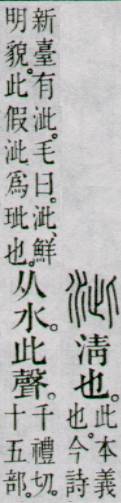 泚 淸也。此本義也。今詩
新臺有泚。毛曰。泚、鮮明貌。此假泚爲玼也。从水。此聲。千禮切。十五部。